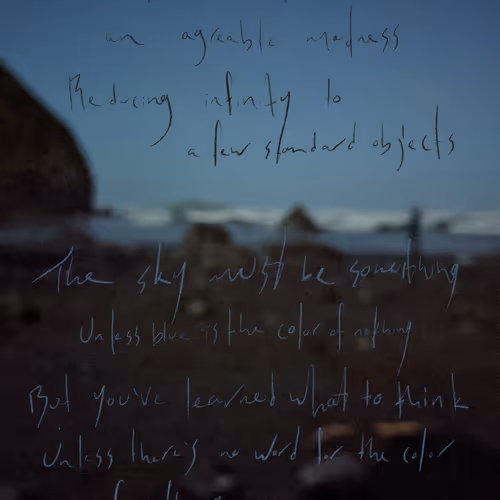 an agreable madness
Reducing infinity to
a few standard objects
The sky must be something
Unless blue is the color of nothing
But you've learned what to think
Unless there's no word for the color